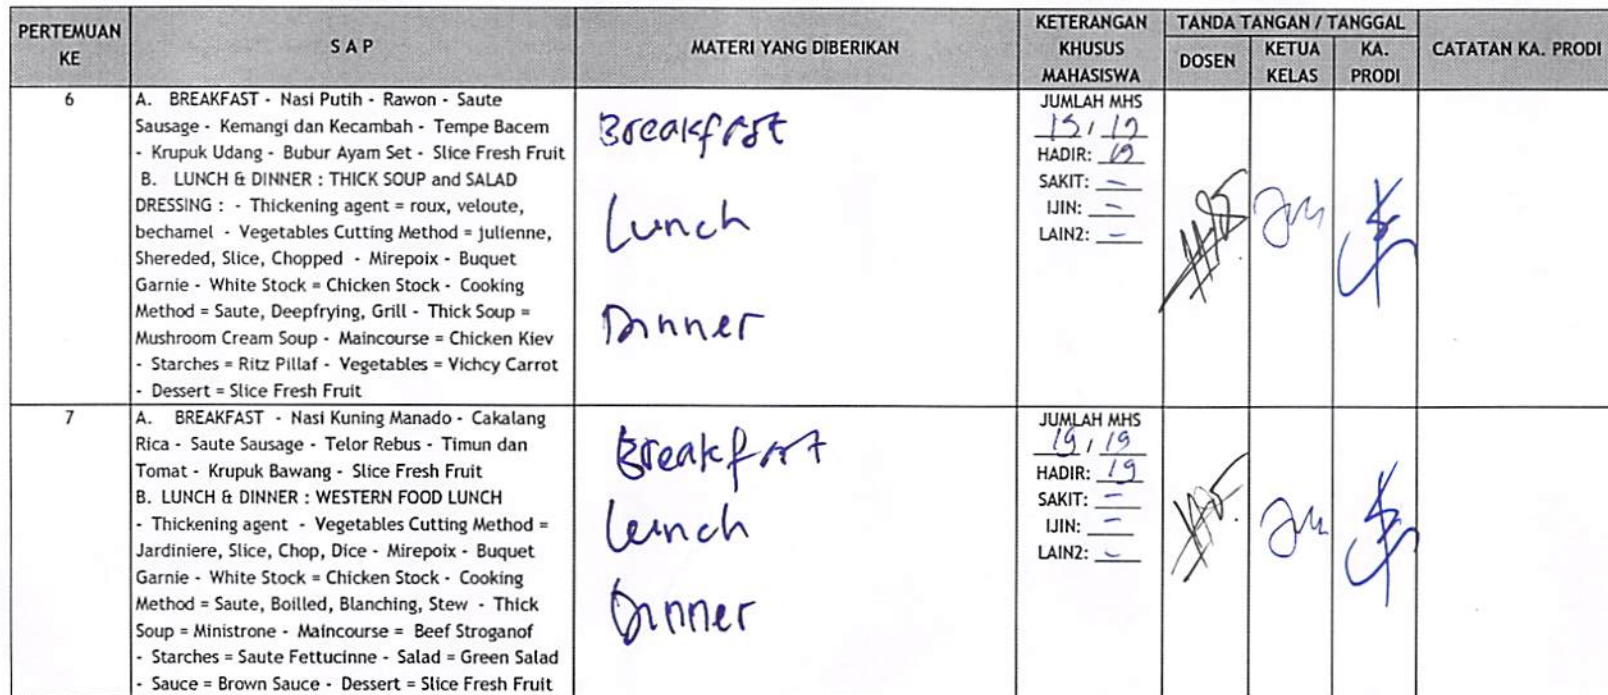 PERTEMUAN KE
S A P
MATERI YANG DIBERIKAN
KETERANGAN KHUSUS MAHASISWA
TANDA TANGAN / TANGGAL
DOSEN
KETUA KELAS
KA. PRODI
CATATAN KA. PRODI
6
A. BREAKFAST - Nasi Putih - Rawon - Saute
Sausage - Kemangi dan Kecambah - Tempe Bacem
- Krupuk Udang - Bubur Ayam Set - Slice Fresh Fruit
B. LUNCH & DINNER : THICK SOUP and SALAD
DRESSING : - Thickening agent = roux, veloute,
bechamel - Vegetables Cutting Method = julienne,
Shereded, Slice, Chopped - Mirepoix - Buquet
Garnie - White Stock = Chicken Stock - Cooking
Method = Saute, Deepfrying, Grill - Thick Soup =
Mushroom Cream Soup - Maincourse = Chicken Kiev
- Starches = Ritz Pillaf - Vegetables = Vichcy Carrot
- Dessert = Slice Fresh Fruit
Breakfast
Lunch
Dinner
JUMLAH MHS
19 / 19
HADIR: 19
SAKIT: -
IJIN: -
LAIN2: -
7
A. BREAKFAST - Nasi Kuning Manado - Cakalang
Rica - Saute Sausage - Telor Rebus - Timun dan
Tomat - Krupuk Bawang - Slice Fresh Fruit
B. LUNCH & DINNER : WESTERN FOOD LUNCH
- Thickening agent - Vegetables Cutting Method =
Jardiniere, Slice, Chop, Dice - Mirepoix - Buquet
Garnie - White Stock = Chicken Stock - Cooking
Method = Saute, Boilled, Blanching, Stew - Thick
Soup = Ministrone - Maincourse = Beef Stroganof
- Starches = Saute Fettucinne - Salad = Green Salad
- Sauce = Brown Sauce - Dessert = Slice Fresh Fruit
Breakfast
Lunch
Dinner
JUMLAH MHS
19 / 19
HADIR: 19
SAKIT: -
IJIN: -
LAIN2: -